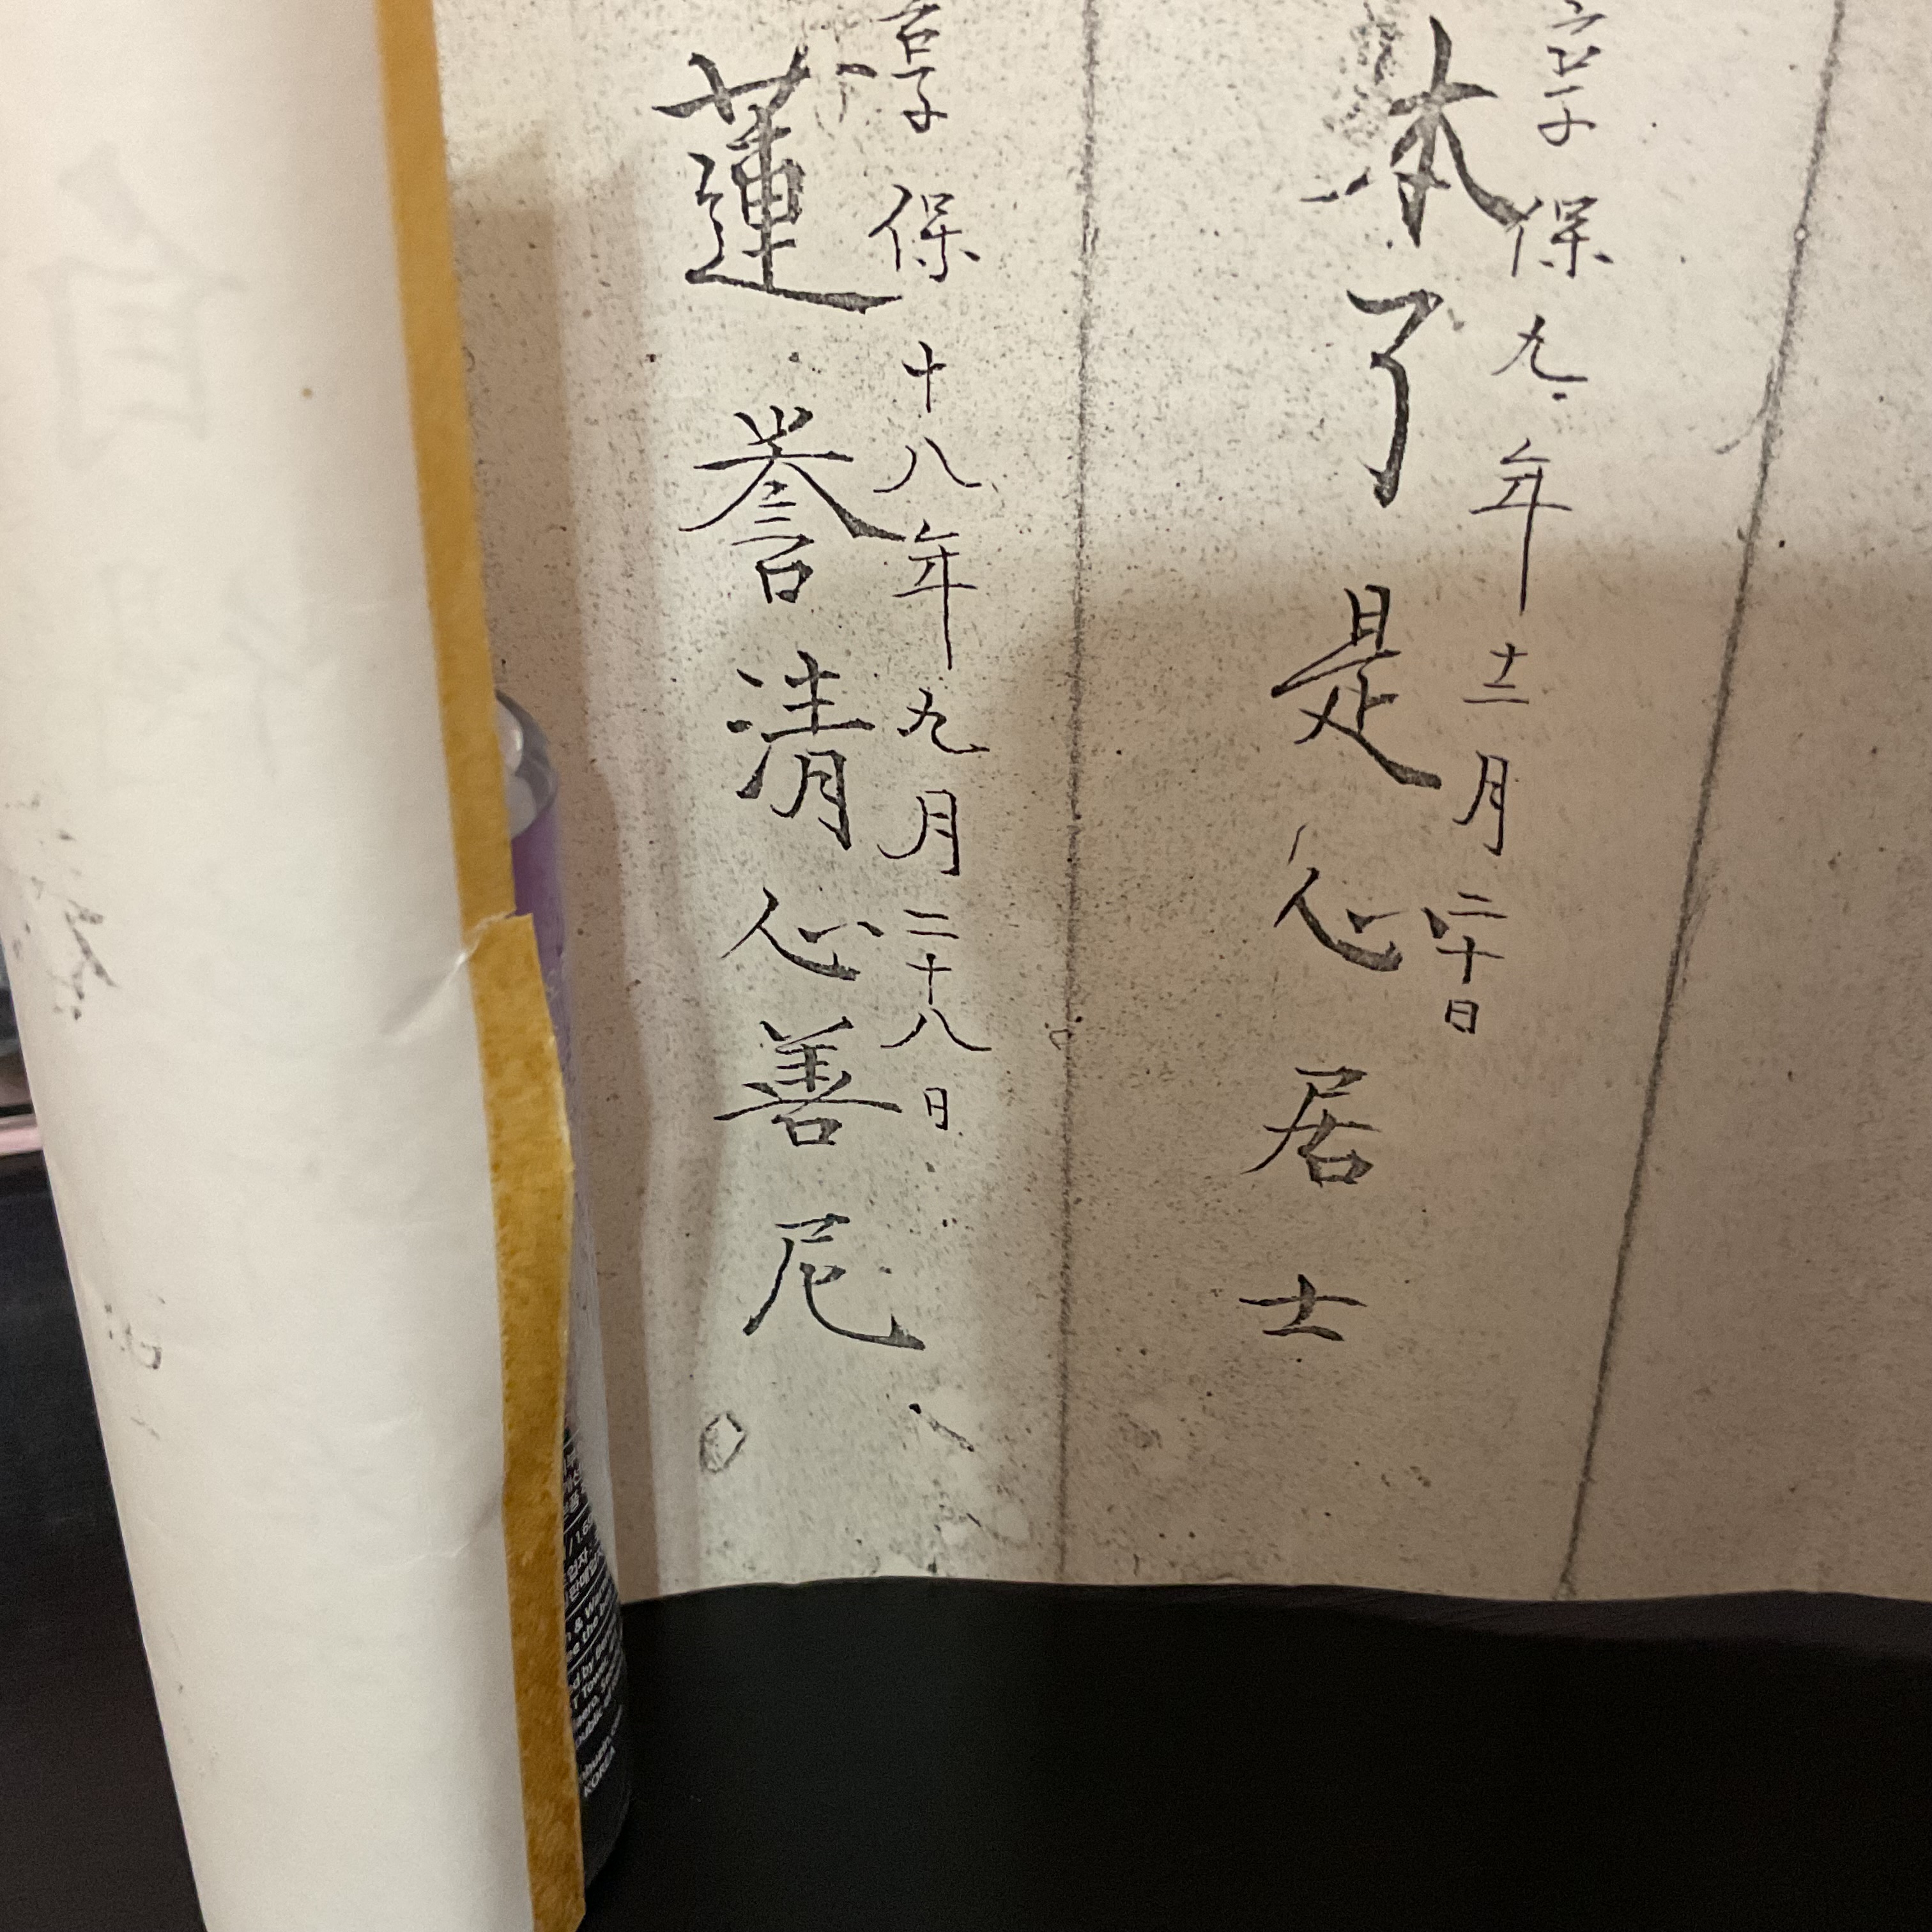 享保九年十二月二十日
本了是心居士
享保十八年九月二十八日
蓮誉清心善尼
KOREA